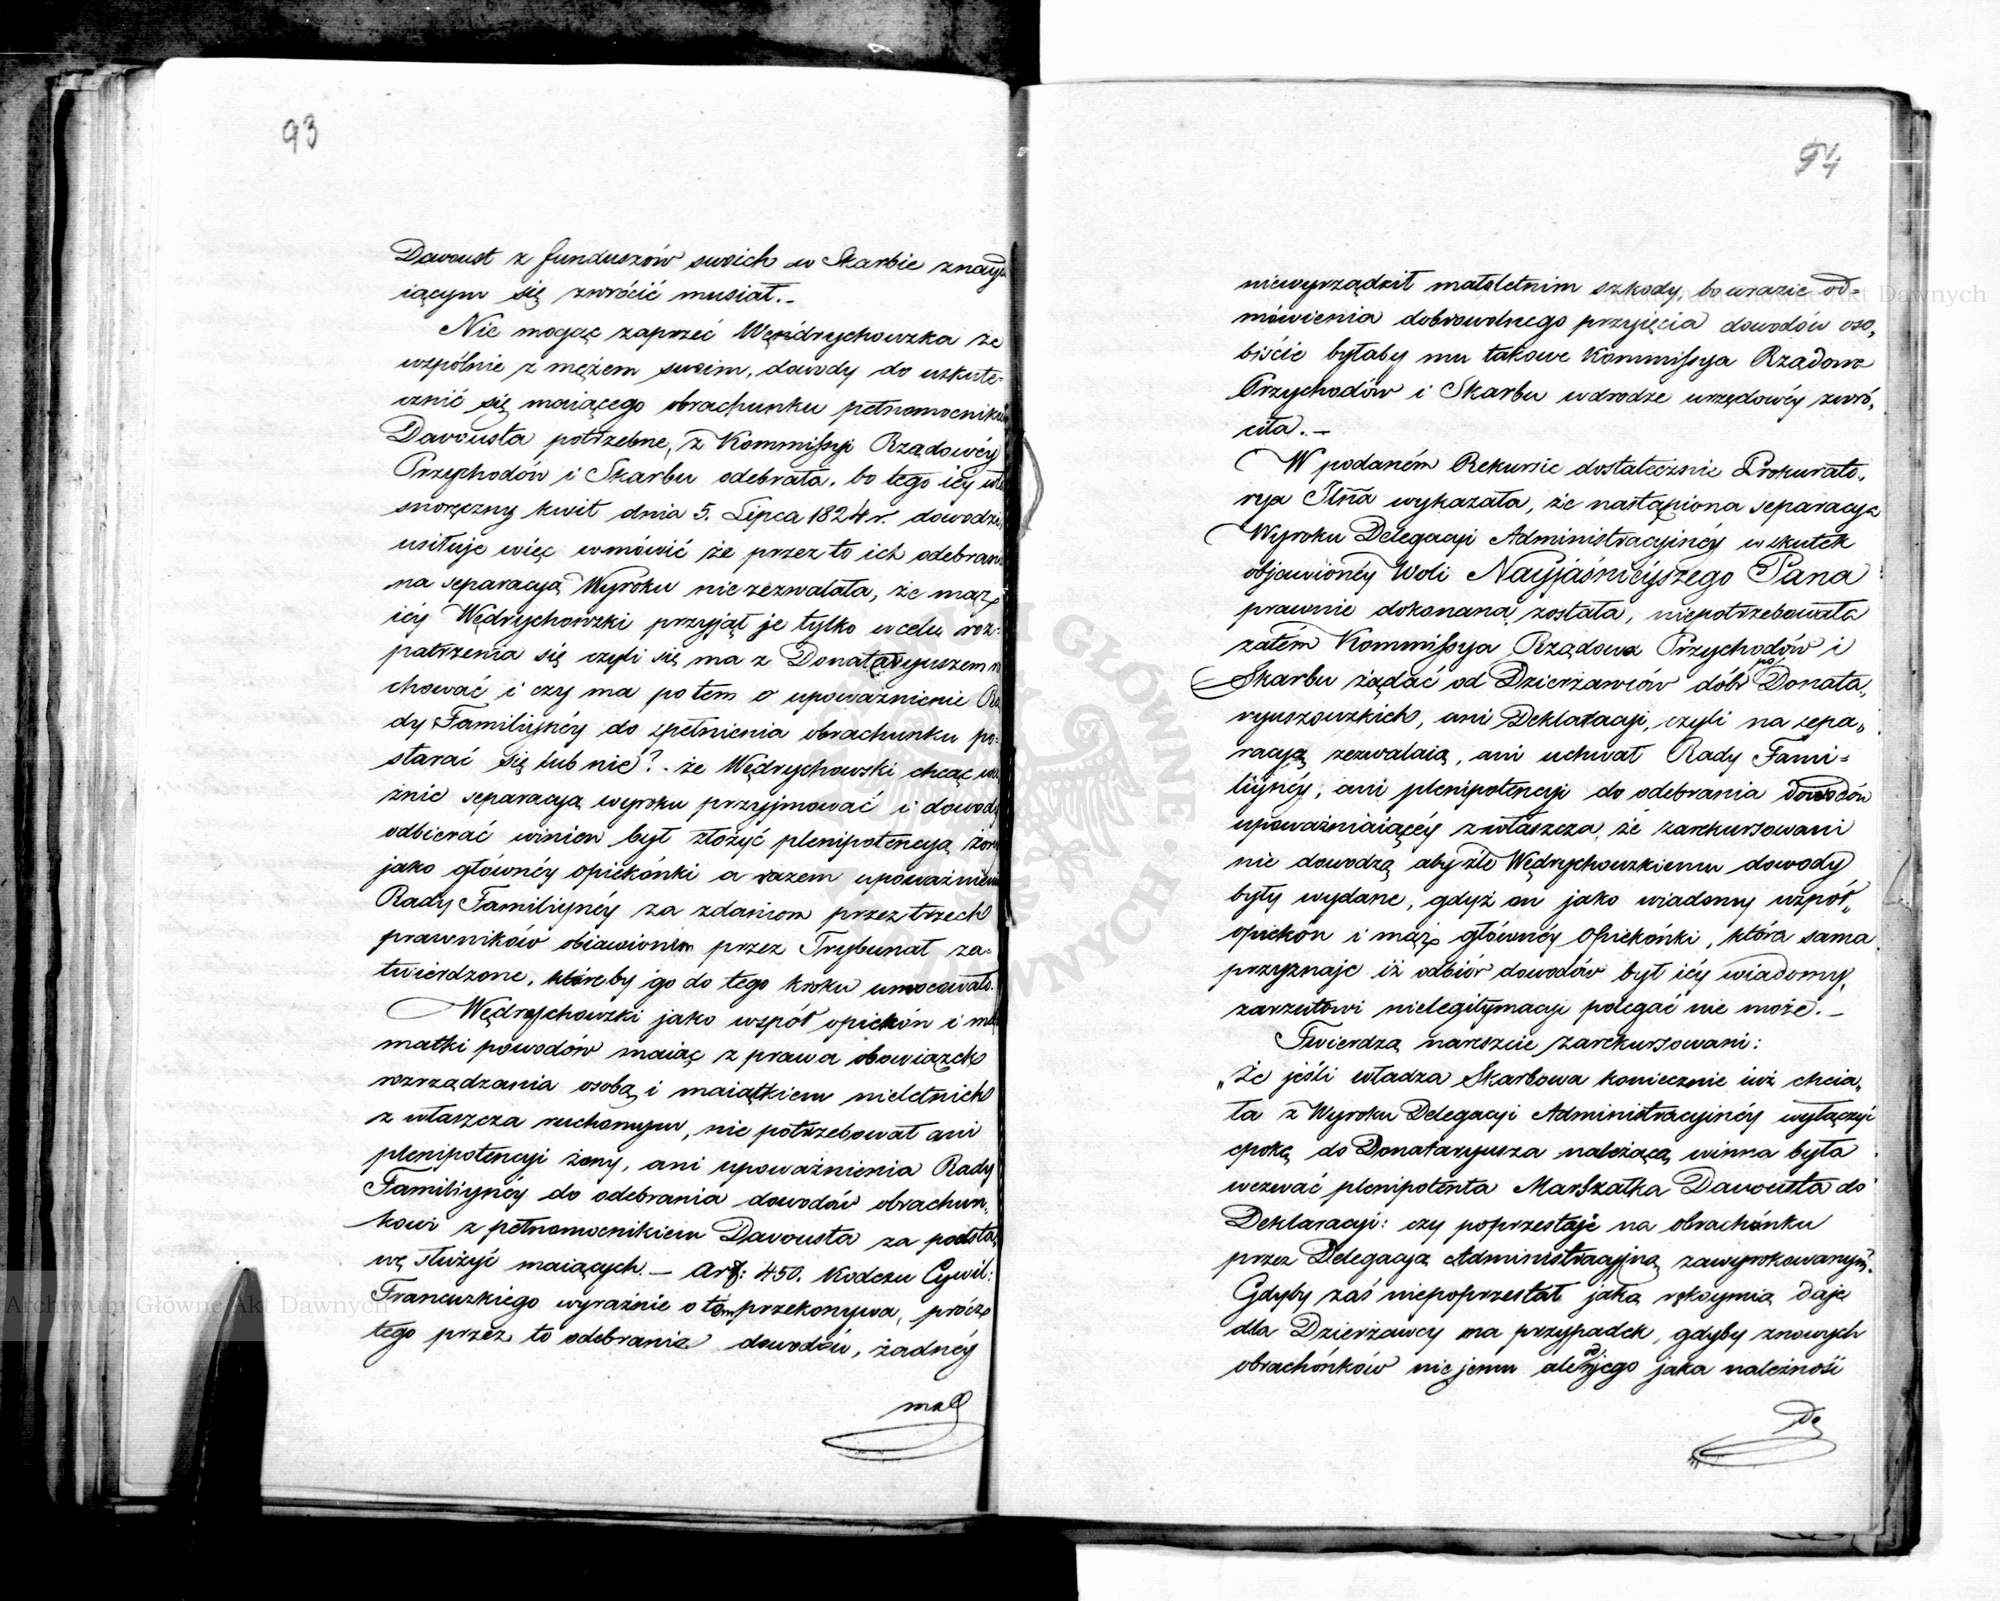 93
Davoust z funduszów swoich w Skarbie znayd
iącym się zwrócić musiał._
Nie mogąc zaprzeć Wędrychowska że
wspólnie z mężem swoim, dowody do uskute-
cznić się maiącego obrachunku pełnomocniko
Davousta potrzebne, z Kommissyi Rządowéy
Przychodów i Skarbu odebrała, bo tego iéy wła
snoręczny kwit dnia 5. Lipca 1824 r. dowodzi,
usiłuje więc wmówić że przez to ich odebran
na separacyą Wyroku nie zezwalała, że mąż
iéy Wędrychowski przyjął je tylko w celu roz-
patrzenia się czyli się ma z Donataryuszem
chować i czy ma po tem o upoważnienie Ra
dy Familiynéy do spełnienia obrachunku po-
starać się lub nie? - że Wędrychowski chcąc wa
żnie separacyą wyroku przyjmować i dowody
odbierać winien był złożyć plenipotencyą żony
jako głównéy opiekónki a razem upoważnien
Rady Familiynéy za zdaniem przez trzech
prawników obiawionem przez Trybunał za-
twierdzone, któreby go do tego kroku umocowało.
Wędrychowski jako wspól opiekón i mąż
matki powodów maiąc z prawa obowiązek
rozrządzania osobą i maiątkiem nieletnich
z właszcza ruchomym, nie potrzebował ani
plenipotencyi żony, ani upoważnienia Rady
Familiynéy do odebrania dowodów obrachun,
kowi z pełnomocnikiem Davousta za podsta,
wę służyć maiących. _ Art: 450. Kodexu Cywil:
Francuzkiego wyraźnie o tem przekonywa, prócz
tego przez to odebranie dowodów, żadnéy
mał
94
niewyrządził małoletnim szkody, bo w razie od-
mówienia dobrowolnego przyjęcia dowodów oso,
biście byłaby mu takowe Kommissya Rządowa
Przychodów i Skarbu w drodze urzędowéy zwró,
ciła. _
W podaném Rekursie dostatecznie Prokurato,
rya Jlna wykazała, że nastąpiona separacya
Wyroku Delegacyi Administracyjnéy w skutek
objawionéy Woli Nayjaśnieyszego Pana
prawnie dokonaną została, niepotrzebowała
zatém Kommissya Rządowa Przychodów i
Skarbu żądać od Dzierżawców dóbr po Donata,
ryuszowskich, ani Deklaracyi, czyli na sepa,
racyą zezwalaią, ani uchwał Rady Fami-
liynéy, ani plenipotencyi do odebrania dowodów
upoważniaiącéy zwłaszcza, że zarekursowani
nie dowodzą aby źle Wędrychowskiemu dowody
były wydane, gdyż on jako wiadomy wspól,
opiekón i mąż głównéy Opiekónki, która sama
przyznaje iż odbiór dowodów był iéy wiadomy,
zarzutowi nielegitymacyi polegać nie może. _
Twierdzą nareszcie zarekursowani:
„że jeśli władza Skarbowa koniecznie iuż chcia,
ła z Wyroku Delegacyi Administracyjnéy wyłączyć
epokę do Donataryusza należącą winna była
wezwać plenipotenta Marszałka Davousta do
Deklaracyi: czy poprzestaje na obrachónku
przez Delegacyą Administracyjną zawyrokowanym?
Gdyby zaś niepoprzestał jaką rękoymią daje
dla Dzierżawcy na przypadek, gdyby z nowych
obrachónków nie jemu ale od niego jaka należność
Da